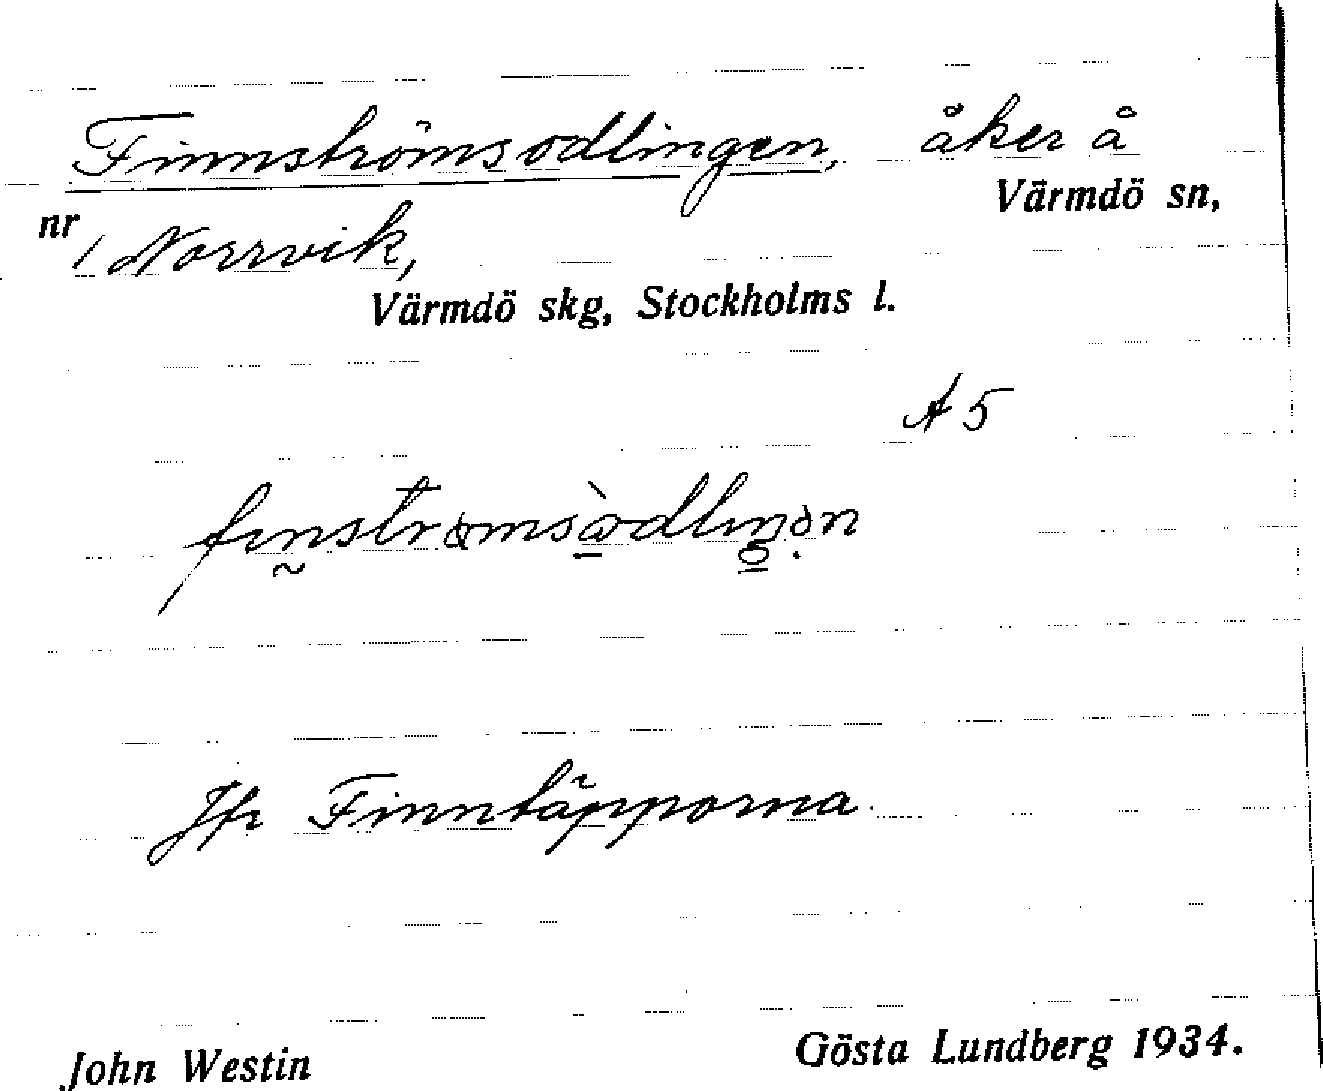 Finnströmsodlingen, åker å
Värmdö sn,
nr 1 Norrvik,
Värmdö skg, Stockholms l.
A 5
Jfr Finntäpporna
John Westin Gösta Lundberg 1934.